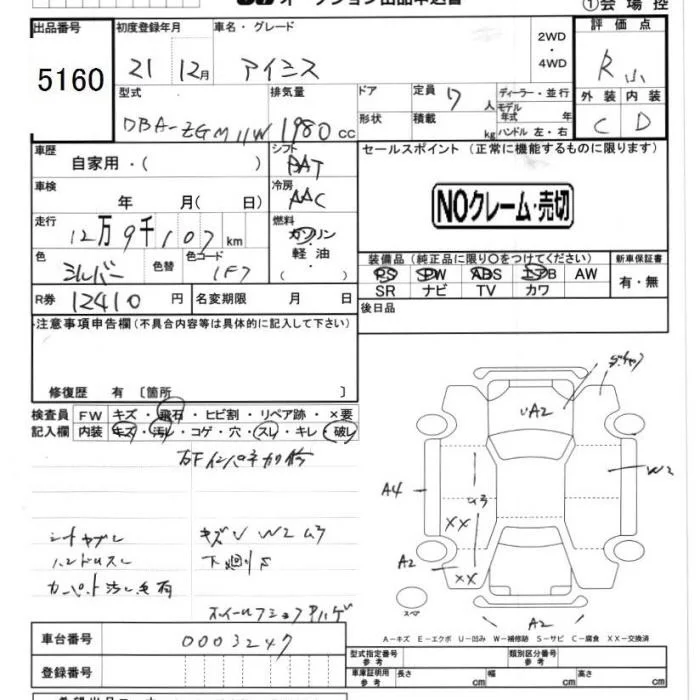 ①会場控
出品番号
5160
初度登録年月
21 12月
車名・グレード
アイシス
2WD
・
4WD
評価点
R
外装 内装
C D
型式
DBA-ZGM11W
排気量
1980 cc
ドア
形状
定員 7 人
積載 kg
ディーラー・並行
モデル年式 年
ハンドル 左・右
車歴
自家用・( )
シフト
AT
セールスポイント (正常に機能するものに限ります)
NOクレーム・売切
車検
年 月( 日)
冷房
AAC
走行
12万9千107 km
燃料
ガソリン
軽油
( )
色
シルバー
色替
色コード
1F7
装備品(純正品に限り〇をつけてください)
PS PW ABS エアB AW
SR ナビ TV カワ
新車保証書
有・無
R券 12410 円
名変期限 月 日
後日品
注意事項申告欄(不具合内容等は具体的に記入して下さい)
修復歴 有 〔箇所 〕
検査員記入欄
FW キズ・飛石・ヒビ割・リペア跡・×要
内装 キズ・汚レ・コゲ・穴・スレ・キレ・破レ
UA2
A4
U3
W2
XX
A2
XX
A2
スペア
シートヤブレ
ハンドルスレ
カーペット汚レ
キズU W2 U3
下廻りS
A-キズ E-エクボ U-凹み W-補修跡 S-サビ C-腐食 XX-交換済
車台番号
0003247
登録番号
型式指定番号 参考
類別区分番号 参考
車庫証明用 参考
長さ cm
幅 cm
高さ cm